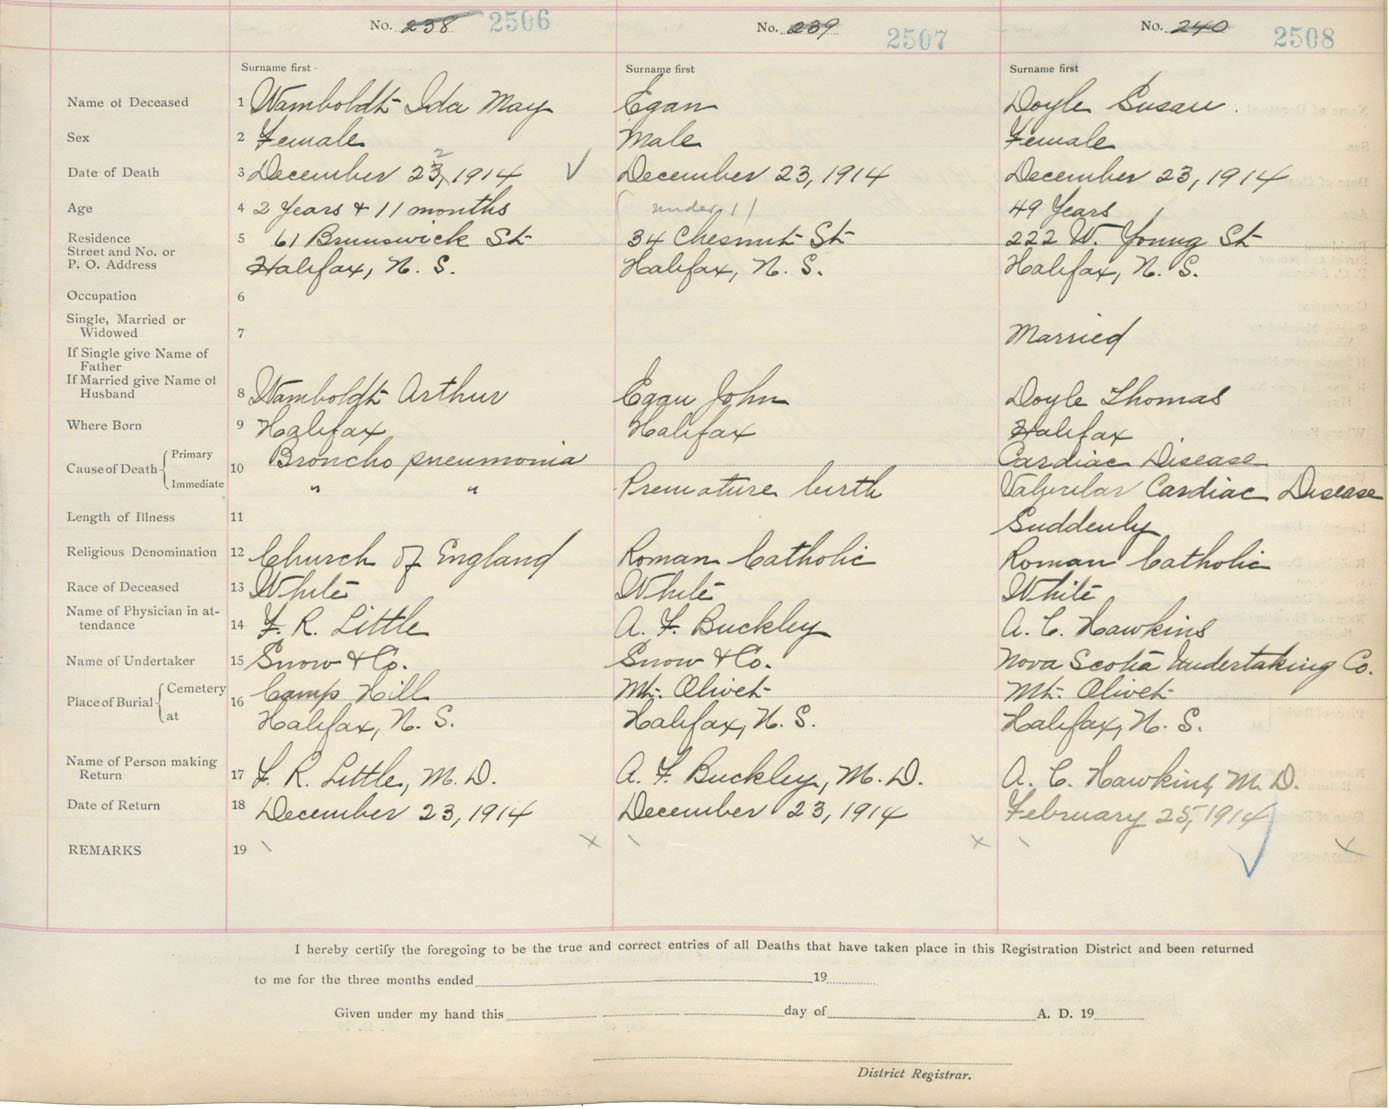 No. 238 2506 No. 239 2507 No. 240 2508
Surname first - Surname first Surname first
Name of Deceased 1 Wamboldt Ida May Egan Doyle Susan.
Sex 2 Female Male Female
2
Date of Death 3 December 23, 1914 ✓ December 23, 1914 December 23, 1914
Age 4 2 Years & 11 months (under 1) 49 Years
Residence 5 61 Brunswick St 34 Chesnut St 222 W. Young St
Street and No. or
P. O. Address Halifax, N. S. Halifax, N. S. Halifax, N. S.
Occupation 6
Single, Married or
Widowed 7 Married
If Single give Name of
Father
If Married give Name of
Husband 8 Wamboldt Arthur Egan John Doyle Thomas
Where Born 9 Halifax Halifax Halifax
Cause of Death Primary 10 Broncho pneumonia Cardiac Disease
Immediate " " Premature birth Valvular Cardiac Disease
Length of Illness 11 Suddenly
Religious Denomination 12 Church of England Roman Catholic Roman Catholic
Race of Deceased 13 White White White
Name of Physician in at-
tendance 14 F. R. Little A. F. Buckley A. C. Hawkins
Name of Undertaker 15 Snow & Co. Snow & Co. Nova Scotia Undertaking Co.
Place of Burial Cemetery 16 Camp Hill Mt. Olivet Mt. Olivet
at Halifax, N. S. Halifax, N. S. Halifax, N. S.
Name of Person making
Return 17 F. R. Little, M. D. A. F. Buckley, M. D. A. C. Hawkins, M. D.
Date of Return 18 December 23, 1914 December 23, 1914 February 25, 1914
REMARKS 19 \ x \ x \ x
I hereby certify the foregoing to be the true and correct entries of all Deaths that have taken place in this Registration District and been returned
to me for the three months ended 19
Given under my hand this day of A. D. 19
District Registrar.